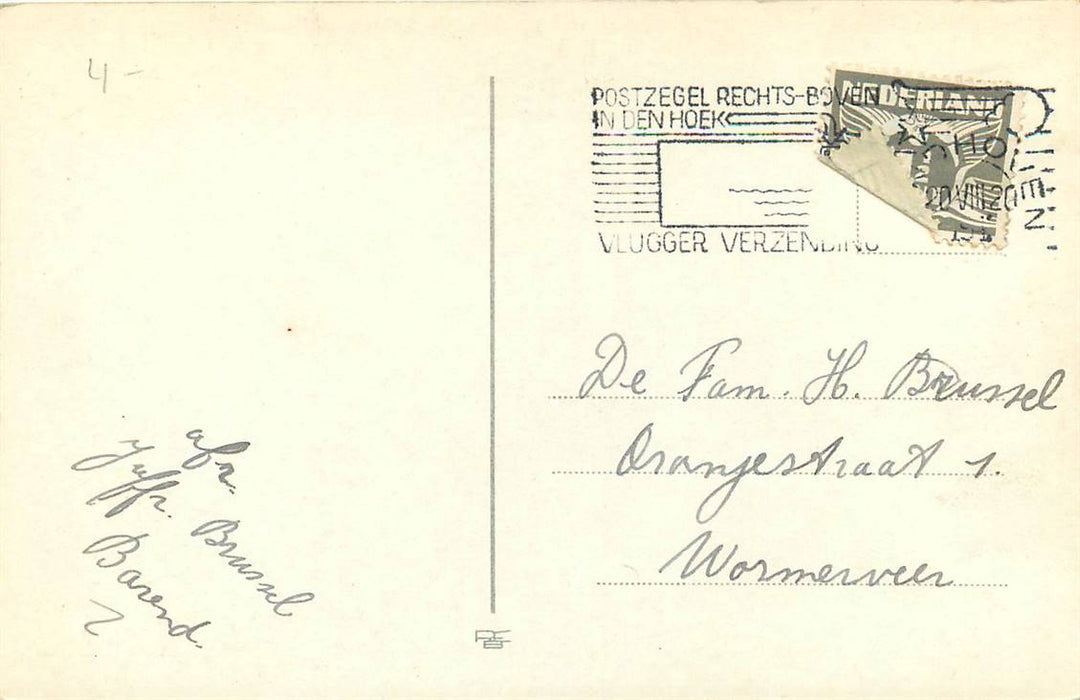 4-
POSTZEGEL RECHTS-BOVEN
IN DEN HOEK
VLUGGER VERZENDING
NEDERLAND
20 VIII 20
De Fam. H. Brussel
Oranjestraat 1.
Wormerveer
afz.
Juffr. Brussel
Barend.